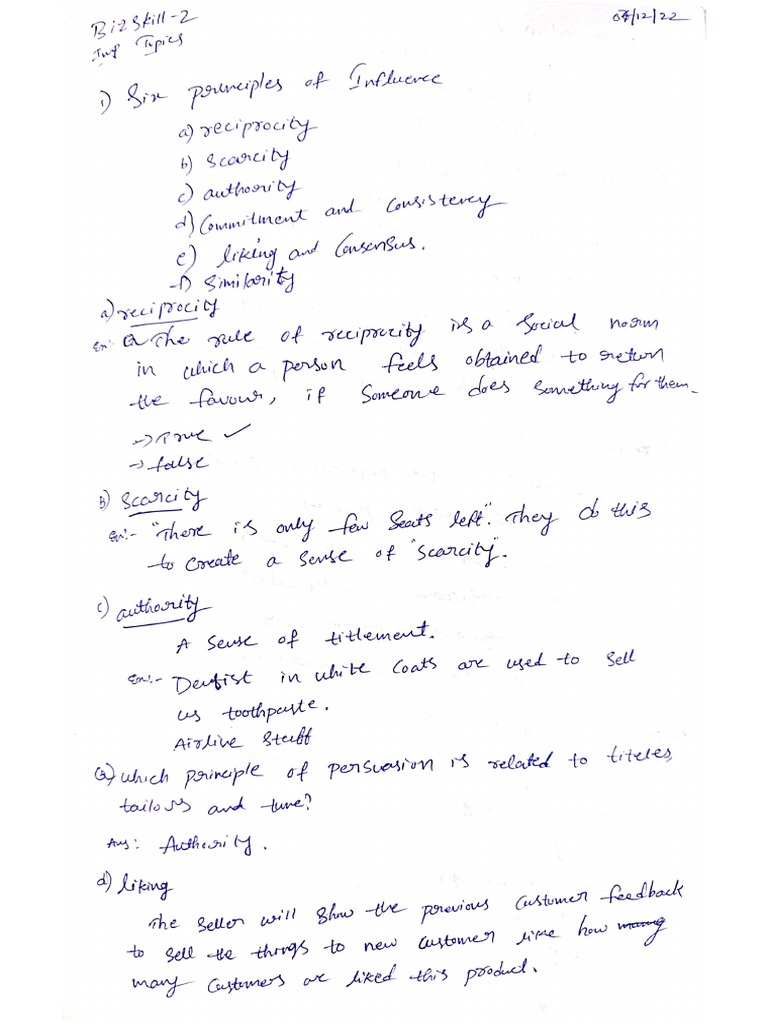 Bizskill-2
04/12/22
Imp Topics
1) Six principles of Influence
a) reciprocity
b) scarcity
c) authority
d) Commitment and Consistency
e) liking and Consensus.
f) Similarity
a) reciprocity
Ex:- Q The rule of reciprocity is a social norm
in which a person feels obtained to return
the favour, if someone does something for them.
→ True ✓
→ false
b) Scarcity
Ex:- "There is only few seats left". They do this
to create a sense of "scarcity".
c) authority
A sense of titlement.
Ex:- Dentist in white coats are used to sell
us toothpaste.
Airline stuff
Q) which principle of persuasion is related to titeles,
tailors and tune?
Ans: Authority.
d) liking
The seller will show the previous customer feedback
to sell the things to new customer like how many
many customers are liked this product.